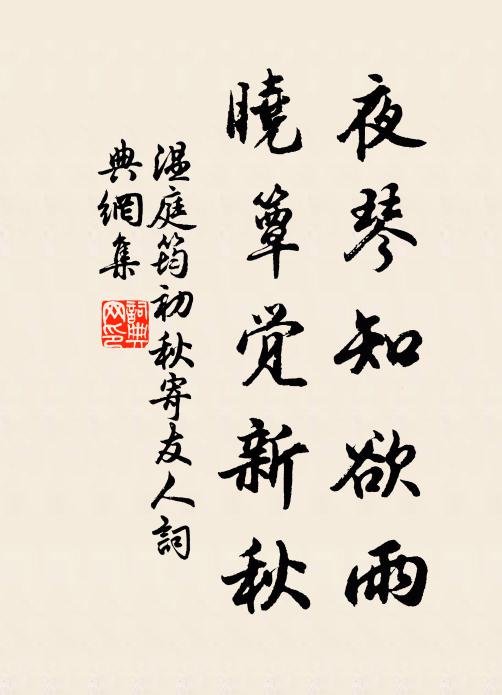 夜琴知欲雨
曉簟觉新秋
温庭筠初秋寄友人詞
典網集
詞典网印